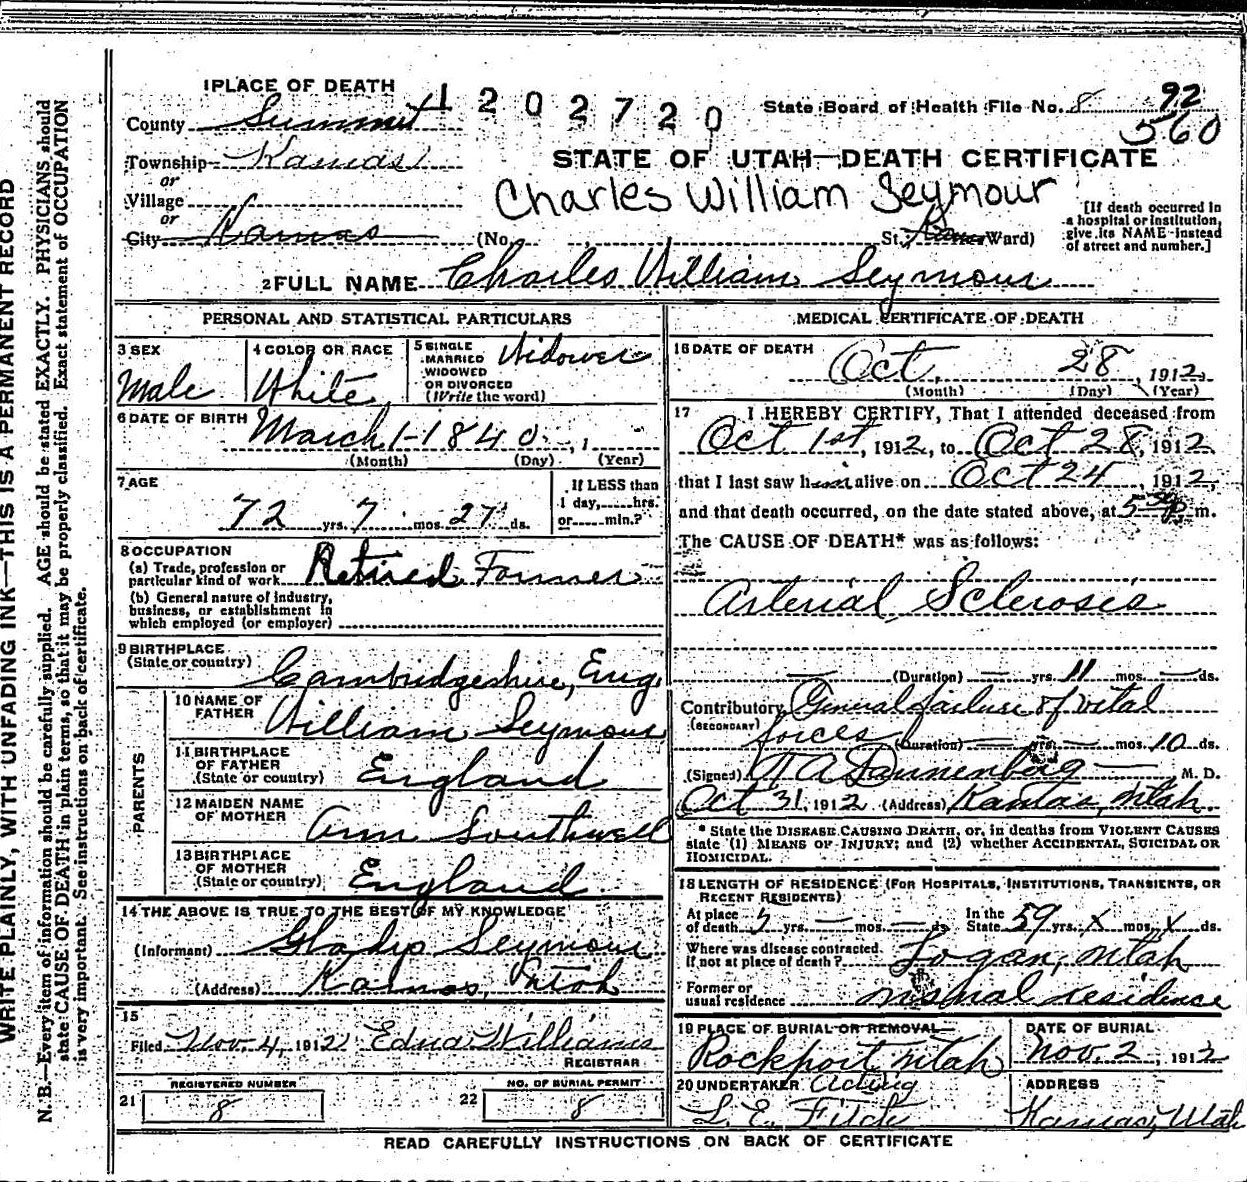 1 PLACE OF DEATH
1202720
State Board of Health File No. 8 92
560
County Summit
Township Kamas
or
Village
or
City Kamas (No. , St., Ward)
STATE OF UTAH—DEATH CERTIFICATE
Charles William Seymour
[If death occurred in
a hospital or institution,
give its NAME instead
of street and number.]
2 FULL NAME Charles William Seymour
PERSONAL AND STATISTICAL PARTICULARS
3 SEX
Male
4 COLOR OR RACE
White
5 SINGLE
MARRIED
WIDOWED
OR DIVORCED
(Write the word)
Widower
6 DATE OF BIRTH March 1-1840. , 1
(Month) (Day) (Year)
7 AGE
72 yrs. 7 mos. 27 ds.
If LESS than
1 day, hrs.
or min.?
8 OCCUPATION
(a) Trade, profession or
particular kind of work Retired Farmer
(b) General nature of industry,
business, or establishment in
which employed (or employer)
9 BIRTHPLACE
(State or country) Cambridgeshire, Eng.
PARENTS
10 NAME OF
FATHER William Seymour
11 BIRTHPLACE
OF FATHER
(State or country) England
12 MAIDEN NAME
OF MOTHER Ann Southwell
13 BIRTHPLACE
OF MOTHER
(State or country) England
14 THE ABOVE IS TRUE TO THE BEST OF MY KNOWLEDGE
(Informant) Gladys Seymour
(Address) Kamas, Utah
15
Filed Nov. 4, 1912 Edna Williams
REGISTRAR
21 REGISTERED NUMBER
8
22 NO. OF BURIAL PERMIT
8
MEDICAL CERTIFICATE OF DEATH
16 DATE OF DEATH
Oct. 28, 1912
(Month) (Day) (Year)
17 I HEREBY CERTIFY, That I attended deceased from
Oct 1st, 1912, to Oct 28, 1912
that I last saw him alive on Oct 24, 1912,
and that death occurred, on the date stated above, at 5 m.
The CAUSE OF DEATH* was as follows:
Arterial Sclerosis
(Duration) — yrs. 11 mos. — ds.
Contributory General failure of vital
(SECONDARY)
forces (Duration) — yrs. — mos. 10 ds.
(Signed) Dannenberg M. D.
Oct 31, 1912 (Address) Kamas, Utah.
* State the DISEASE CAUSING DEATH, or, in deaths from VIOLENT CAUSES
state (1) MEANS OF INJURY; and (2) whether ACCIDENTAL, SUICIDAL OR
HOMICIDAL.
18 LENGTH OF RESIDENCE (FOR HOSPITALS, INSTITUTIONS, TRANSIENTS, OR
RECENT RESIDENTS)
At place
of death yrs. — mos. — ds.
In the
State 59 yrs. x mos. x ds.
Where was disease contracted
If not at place of death? Logan, Utah
Former or
usual residence usual residence
19 PLACE OF BURIAL OR REMOVAL
Rockport Utah
DATE OF BURIAL
Nov. 2, 1912
20 UNDERTAKER Acting
L. E. Fitch
ADDRESS
Kamas, Utah
READ CAREFULLY INSTRUCTIONS ON BACK OF CERTIFICATE
WRITE PLAINLY, WITH UNFADING INK—THIS IS A PERMANENT RECORD
N. B.—Every item of information should be carefully supplied. AGE should be stated EXACTLY. PHYSICIANS should
state CAUSE OF DEATH in plain terms, so that it may be properly classified. Exact statement of OCCUPATION
is very important. See instructions on back of certificate.